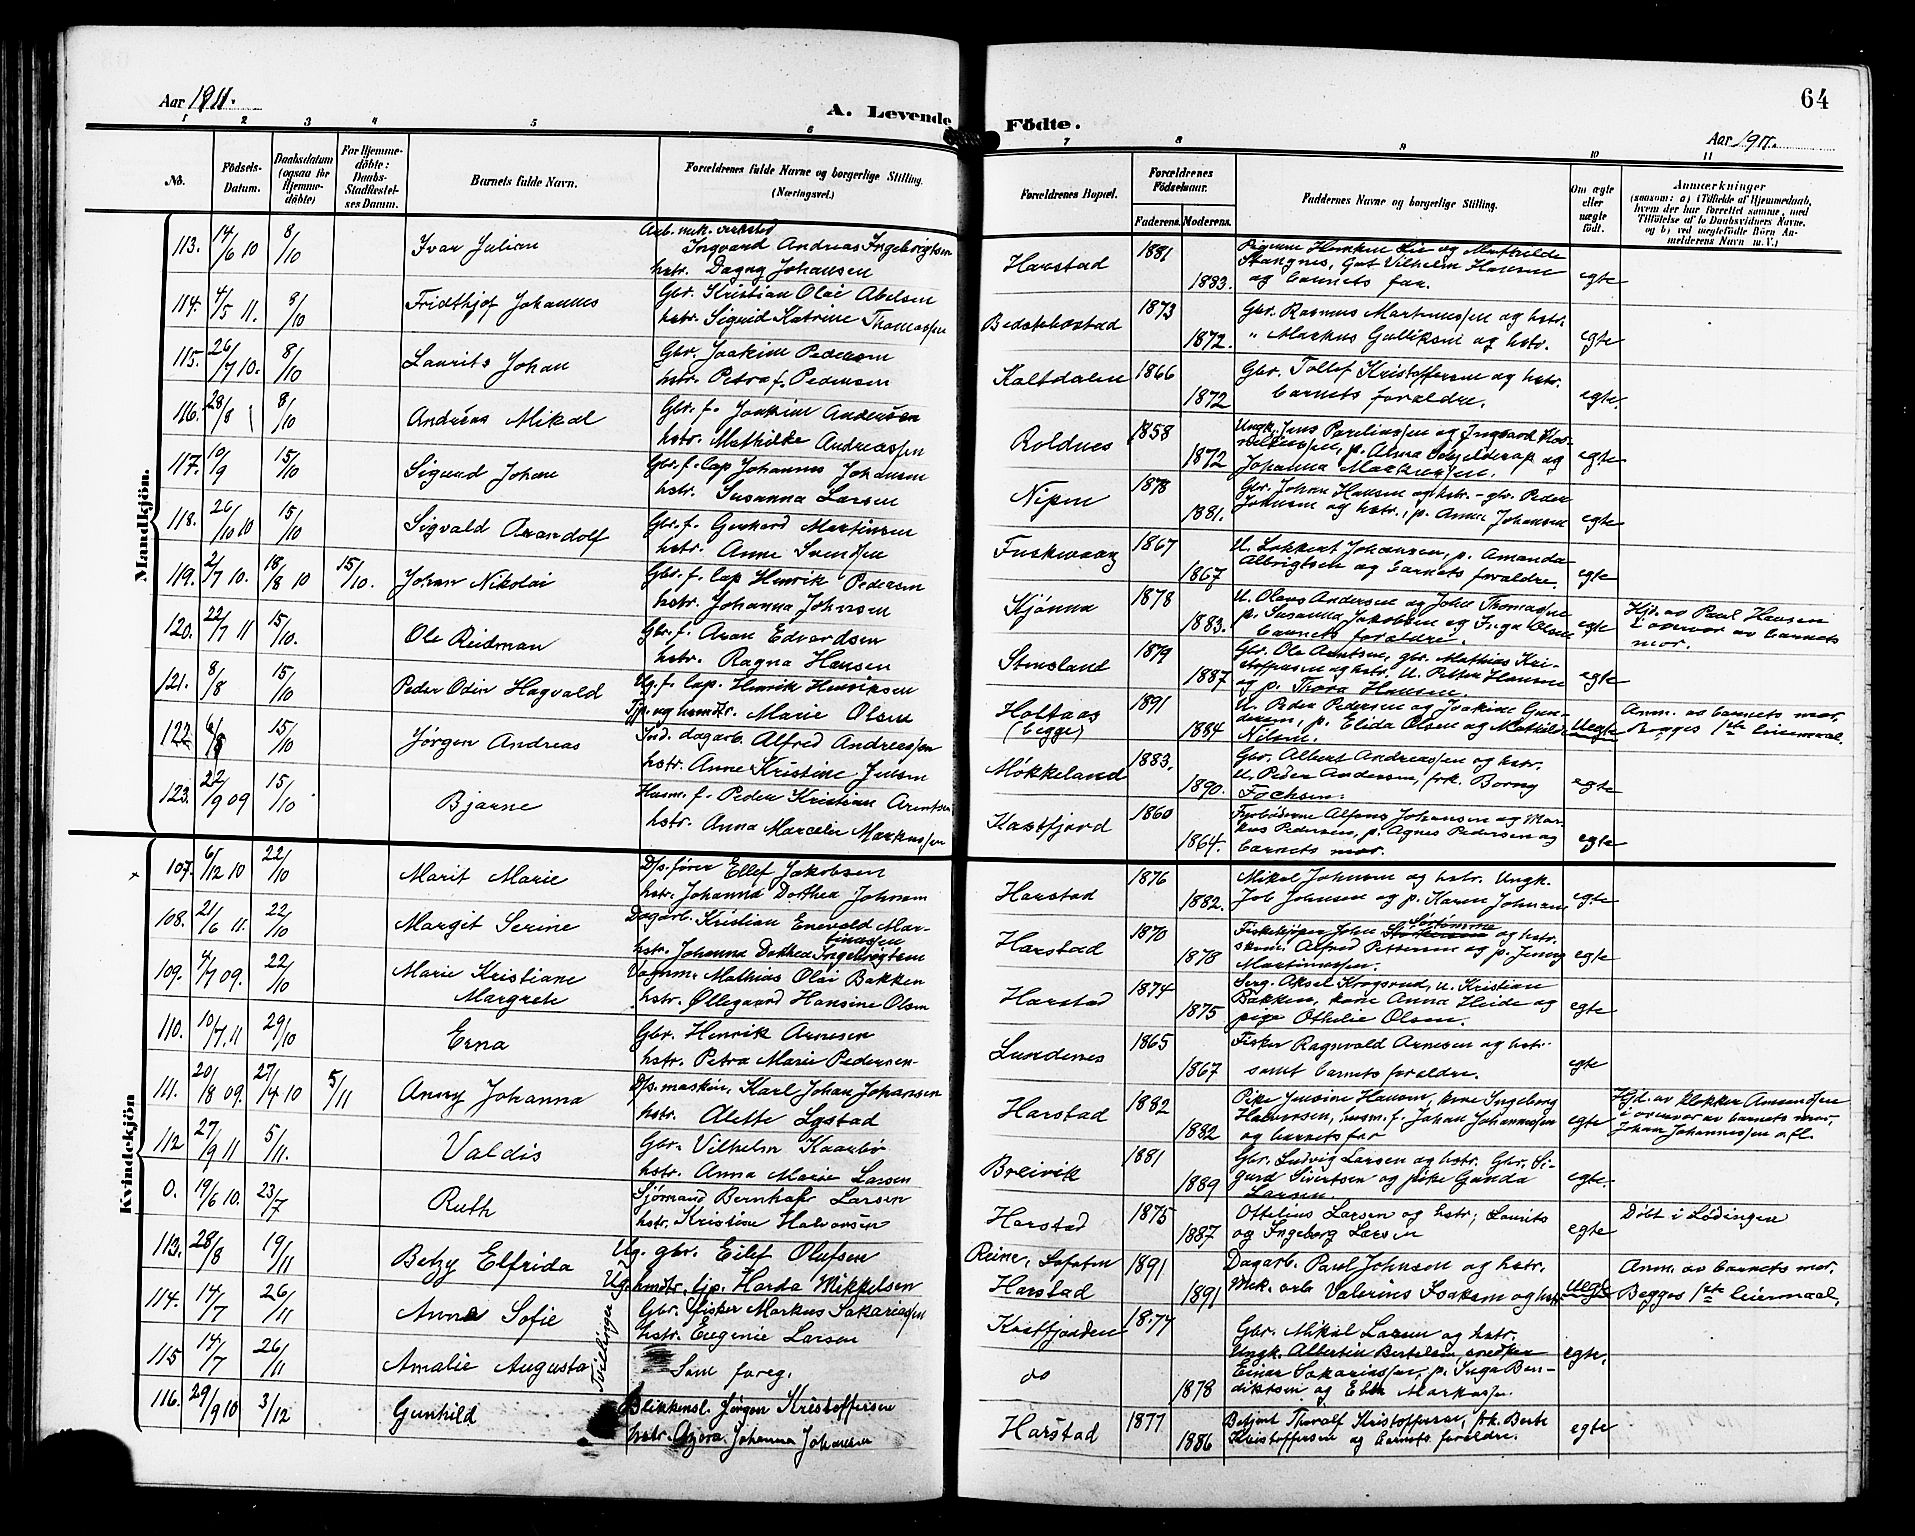 64
Aar 1911.
A. Levende Födte.
Aar 1911.
1 2 3 4 5 6 7 8 9 10 11
No.
Födsels-Datum.
Daabsdatum (ogsaa for Hjemme-döbte)
For Hjemme-döbte: Daabs-Stadfæstel-ses Datum.
Barnets fulde Navn.
Forældrenes fulde Navne og borgerlige Stilling. (Næringsvei.)
Forældrenes Bopæl.
Forældrenes Födselsaar.
Faderens. Moderens.
Faddernes Navne og borgerlige Stilling.
Om ægte eller uægte födt.
Anmærkninger
(saasom: a) (Tilfælde af Hjemmedaab, hvem der har forrettet samme, med Tilföielse af to Daabsvidners Navne, og b) ved uægtefödte Börn An-melderens Navn m. V.)
Mandkjön.
113. 14/6 10 8/10 Ivar Julian
Arb. mek. verksted Ingvard Andreas Ingebrigtsen
hstr. Dagny Johansen
Harstad 1881 1883.
Stangnes, Gat Vilhelm Hansen
og barnets far.
egte
114. 4/5 11. 8/10 Fridthjof Johannes
Gbr. Kristian Olai Abelsen
hstr. Sigrid Katrine Thomassen
1873 1872.
Gbr. Rasmus Martinussen og hstr.
" Markus Gulliksen og hstr.
egte
115. 26/7 10. 8/10 Laurits Johan
Gbr. Joakim Pedersen
hstr. Petra f. Pedersen
Kaltdalen 1866 1872
Gbr. Tollef Kristoffersen og hstr.
barnets forældre.
egte.
116. 28/8 8/10 Andreas Mikal
Gbr. f. Joakim Andersen
hstr. Mathilde Andreassen
Roldnes 1858 1872
Johanna Markussen.
egte
117. 10/9 15/10 Sigurd Johan
Gbr. f. Cap Johannes Johansen
hstr. Susanna Larsen
Nipen 1878 1881.
Gbr. Johan Hansen og hstr. - gbr. Peder
Johnsen og hstr., p. Anna Johansen
egte
118. 26/10 10 15/10 Sigvald Arandolf
Gbr. f. Gerhard Martinsen
hstr. Anne Svendsen
Fuskevaag 1867 1867
U. Lokkert Johansen, p. Amanda
Albrigtsen og barnets forældre.
egte
119. 2/7 10. 18/8 10 15/10. Johan Nikolai
Gbr. f. Cap Henrik Pedersen
hstr. Johanna Johnsen
Kjønna 1878 1883.
U. Olaus Andersen og John Thomassen
p. Susanna Jakobsen og Inga Olsen
barnets forældre.
egte
Hjd. av Paul Hansen
i overvær av barnets
mor.
120. 22/7 11 15/10. Ole Reidman
Gbr. f. Aran Edvardsen
hstr. Ragna Hansen
Stensland 1879 1887
Gbr. Ole Arntsen, gbr. Mathias Kri-
stoffersen og hstr. U. Petter Hansen
og p. Thora Hansen.
egte
121. 8/8 15/10 Peder Odin Hagvald
Ug. f. Cap. Henrik Henriksen
Tjp. og husmdtr. Marie Olsen
Holtaas
(begge)
1891 1884
U. Peder Pedersen og Joakim Gun-
dersen, p. Elida Olsen og Mathilde
Nilsen.
Uegte
Anm. av barnets mor.
Begges 1ste leiermaal.
122 6/8 15/10 Jørgen Andreas
Ind. dagarb. Alfred Andreassen
hstr. Anne Kristine Jensen
Møkkeland 1883. 1890.
Gbr. Albert Andreassen og hstr.
U. Peder Andersen, frk. Borny
Fochsen.
egte
123. 22/9 09 15/10 Bjarne
Husm. f. Peder Kristian Arntsen
hstr. Anna Marcelie Markussen
Kastfjord 1860 1864.
Fyrbøderne Alfons Johansen og Mar-
kus Pedersen, p. Agnes Pedersen og
barnets mor.
egte
Kvindekjön
107. 6/12 10 22/10 Marit Marie
D/s. fører Ellef Jakobsen
hstr. Johanna Dorthea Johnsen
Harstad 1876 1882.
Mikal Johnsen og hstr. Ungk.
Job Johnsen og p. Karen Johnsen
egte
108. 21/6 11. 22/10 Margit Serine
Dagarb. Kristian Enevald Mar-
tinussen
hstr. Johanna Dorthea Ingebrigtsen
Harstad 1870 1878
Fiskekjøper John og hstr.
skom. Alfred Pettersen og p. Jenny
Martinussen.
egte
109. 4/7 09. 22/10 Marie Kristiane
Margrete
Vognm. Mathias Olai Bakken
hstr. Øllegaard Hansine Olsen
Harstad 1874 1875
Serg. Aksel Krogsrud, U. Kristian
Bakken, kone Anna Heide og
pige Othilie Olsen.
egte
110. 10/7. 11 29/10 Erna
Gbr. Henrik Arnesen
hstr. Petra Marie Pedersen
Lundenes 1865 1867
Fisker Ragnvald Arnesen og hstr.
samt barnets forældre.
egte
111. 20/8 09. 27/14 10 5/11 Anny Johanna
D/s. maskin. Karl Johan Johansen
hstr. Alette Lystad
Harstad 1882 1882
Pike Jensine Hansen, kone Ingeborg
Halvorsen, husm. f. Johan Johannessen
og barnets far
egte
Hjd. av klokker Amundsen
i overvær av barnets mor,
Johan Johannessen o.fl.
112 27/9 11 5/11. Valdis
Gbr. Vilhelm Kaarbø
hstr. Anna Marie Larsen
Breivik 1881 1889
Gbr. Ludvig Larsen og hstr. Gbr. Si-
gurd Sivertsen og pike Gunda
Larsen.
egte.
0. 19/6 10. 23/7 Ruth
Sjømand Bernhahr Larsen
hstr. Kristine Halvorsen
Harstad 1875 1887
Ottelius Larsen og hstr; Laurits
og Ingeborg Larsen
egte
Døbt i Lødingen
113. 28/8 19/11 Betzy Elfrida
Ug. gbr. Eilef Olufsen
Ug. husmdtr. tjp. Harda Mikkelsen
Reine, Lofoten
Harstad
1891 1891
Dagarb. Paul Johnsen og hstr.
Mek. arb Valerius Isaksen og hstr
Uegte
Anm. av barnets mor.
Begges 1ste leiermaal.
114. 14/7 26/11 Anna Sofie
Tvillinger
Gbr. fisker Markus Sakariassen
hstr. Eugenie Larsen
Kastfjorden 1877
Gbr. Mikal Larsen og hstr.
Ungk. Albertin Bertelsen, snedker
egte.
115 14/7 26/11 Amalie Augusta
Som foreg.
do 1878
Einar Sakariassen, p. Inga Ben-
diktsen og Ellen Markussen.
116. 29/9 10 3/12 Gunhild
Blikkensl. Jørgen Kristoffersen
hstr. Johanna Johansen
Harstad 1877 1886
Betjent Thoralf Kristoffersen, frk. Berte
Kristoffersen og barnets forældre.
egte